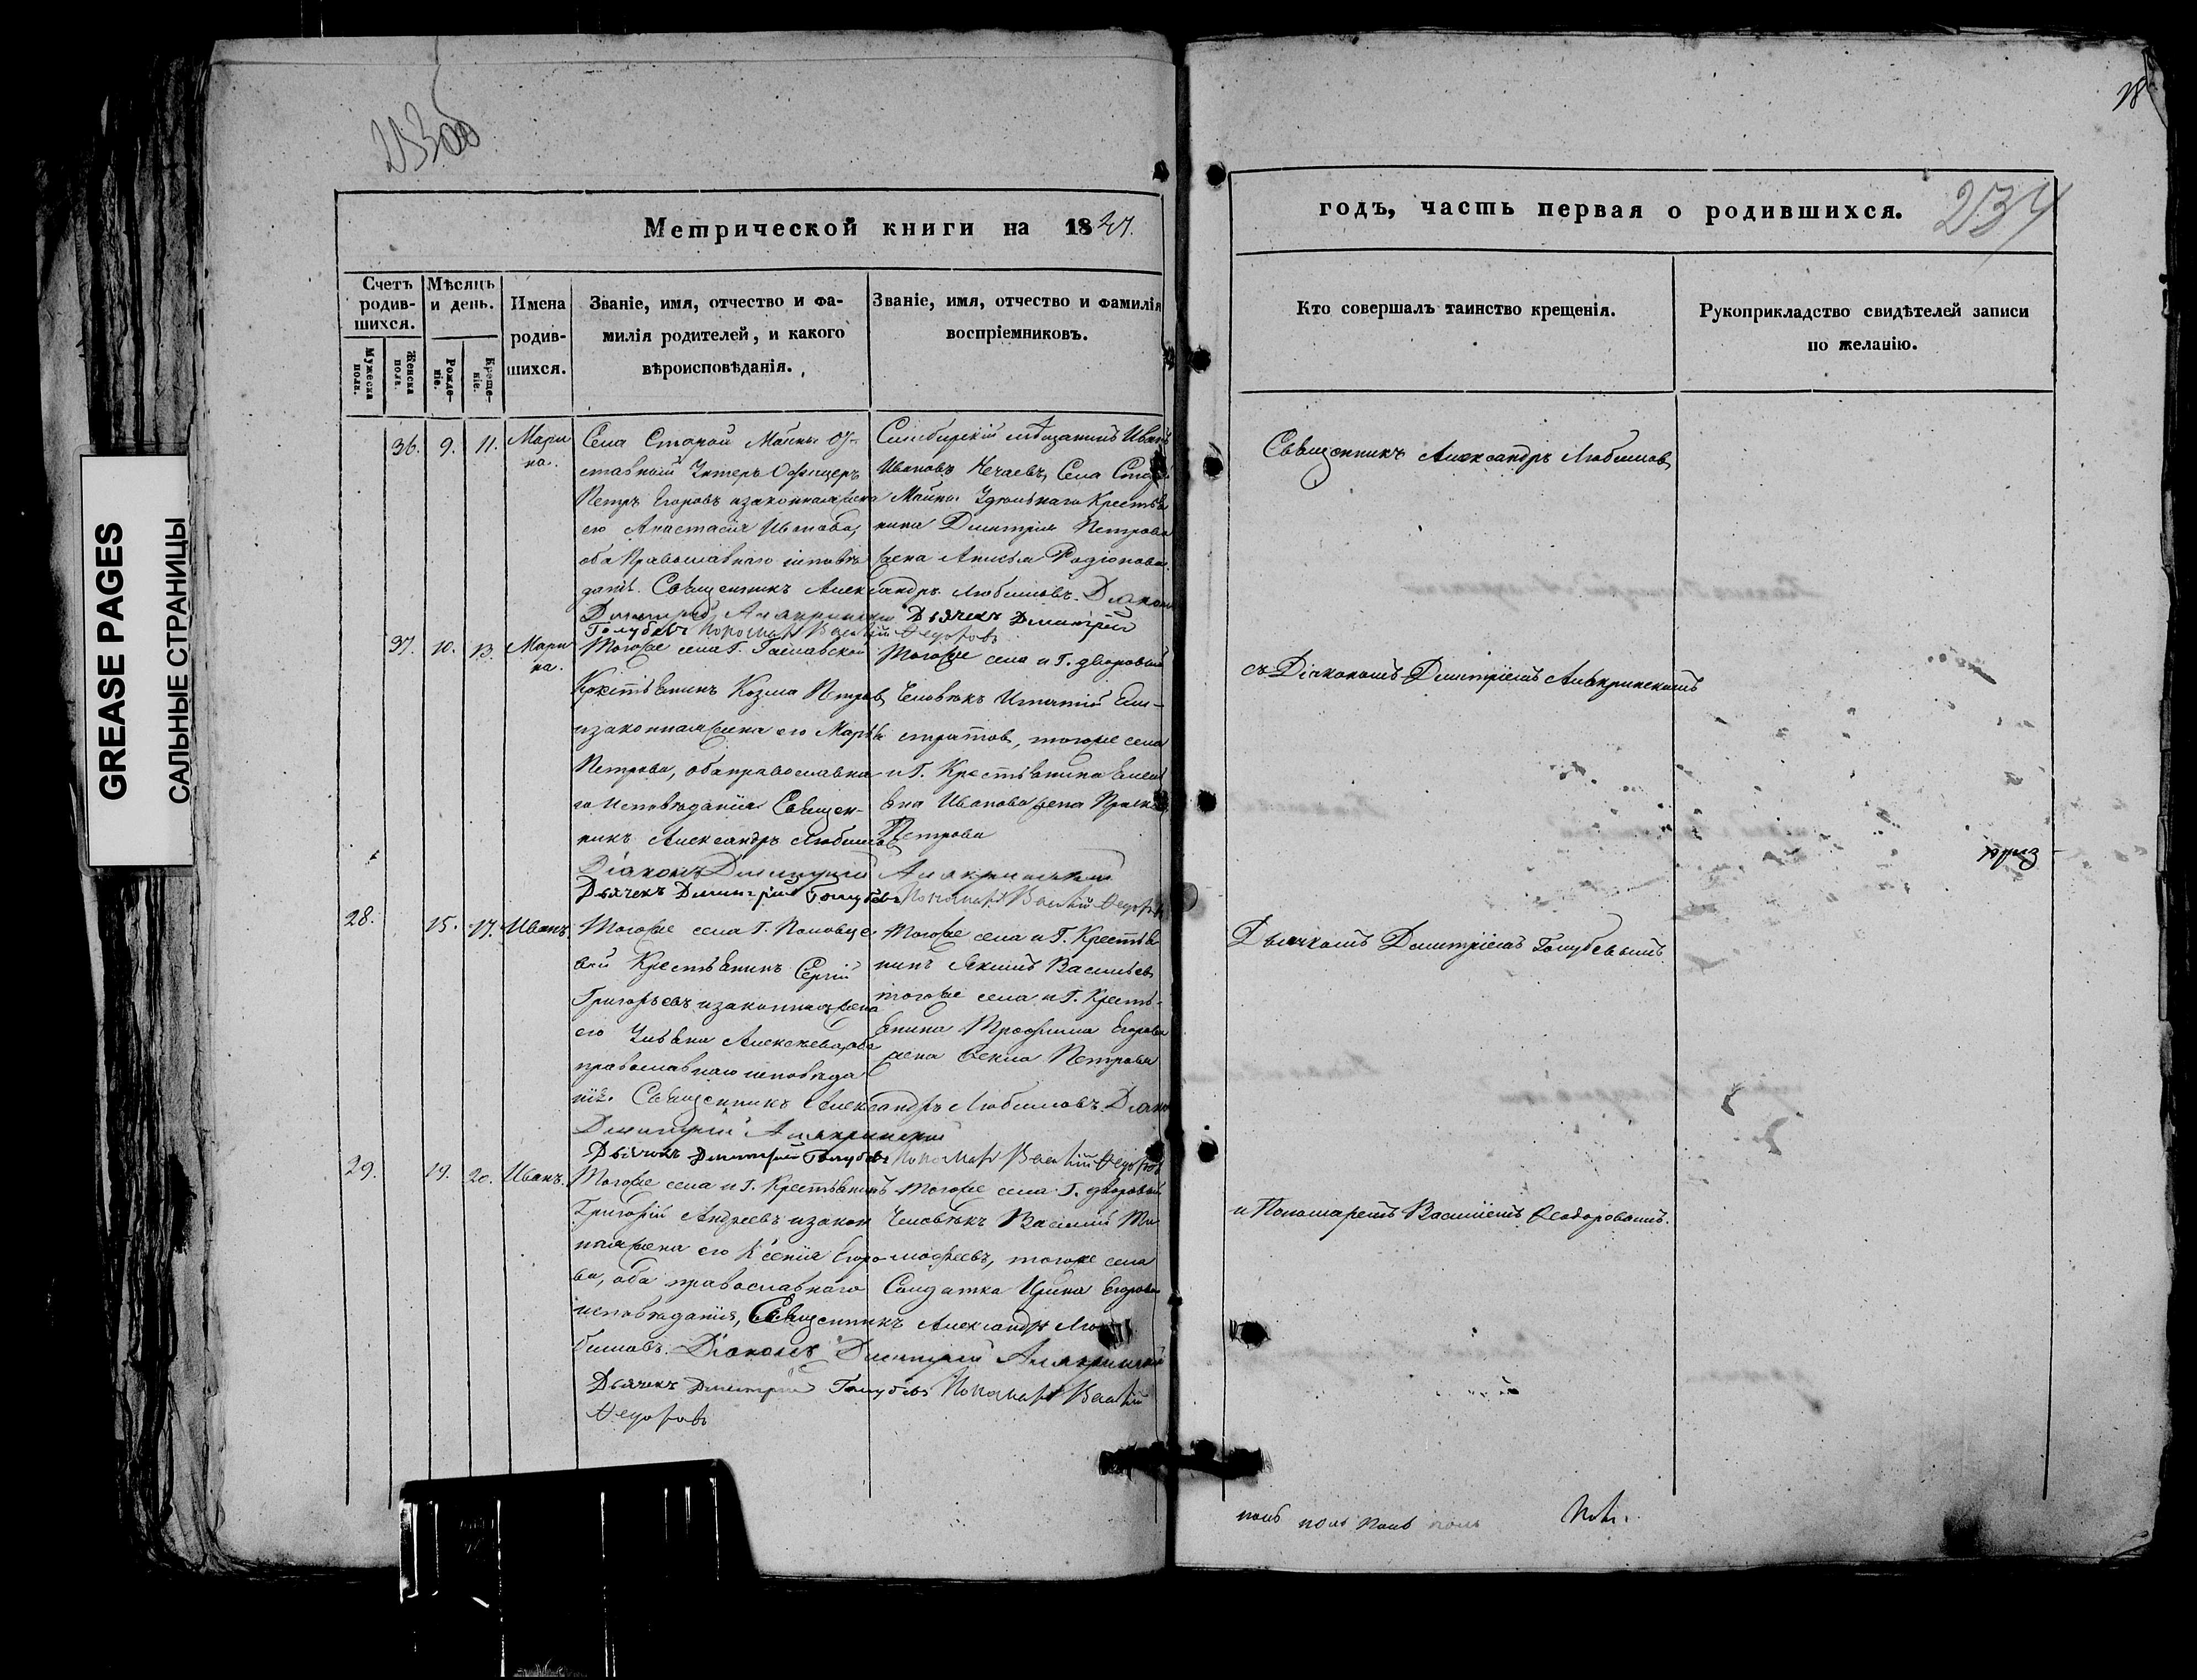 233 об
Метрической книги на 1847.
Счетъ родив-шихся.
Мужеска пола.
Женска пола.
Мѣсяцъ и день.
Рожде-ніе.
Креще-ніе.
Имена родив-шихся.
Званіе, имя, отчество и фа-
милія родителей, и какого
вѣроисповѣданія.
Званіе, имя, отчество и фамилія
воспріемниковъ.
36. 9. 11. Мари
на.
Села Старой Майны От-
ставный Унтеръ Офицеръ
Петръ Егоровъ и законная жена
его Анастасія Иванова,
оба Православнаго исповѣ
данія. Священникъ Александръ Любимовъ. Діаконъ
Димитрій Алакринскій Дьячекъ Димитрій
Голубевъ Пономарь Василій Ѳедоровъ
Симбирскій мѣщанинъ Иванъ
Ивановъ Нечаевъ, Села Старой
Майны Удѣльнаго Крестья
нина Димитрія Петрова
жена Анисья Родіонова.
37. 10. 13. Мари
на.
Тогоже села Г.
Крестьянинъ Козма Петровъ
и законная жена его Марѳа
Петрова, оба православна
го исповѣданія Священ-
никъ Александръ Любимовъ
Діаконъ Димитрій Алакринскій
Дьячекъ Димитрій Голубевъ Пономарь Василій Ѳедоровъ
Тогоже села и Г. дворовый
Человѣкъ Игнатій Ели-
стратовъ, тогоже села
и Г. Крестьянина Емель
яна Иванова жена
Петрова
28. 15. 17. Иванъ.
Тогоже села Г.
Крестьянинъ Сергій
Григорьевъ и законная жена
его Ульяна Алексѣева, оба
православнаго исповѣда
нія. Священникъ Александръ Любимовъ. Діаконъ
Димитрій Алакринскій
Дьячекъ Димитрій Голубевъ Пономарь Василій Ѳедоровъ
Тогоже села и Г. Крестья
нинъ Якимъ Васильевъ
тогоже села и Г. Кресть-
янина Трофима Егорова
жена Ѳекла Петрова
29. 19. 20. Иванъ.
Тогоже села и Г. Крестьянинъ
Григорій Андреевъ и закон
ная жена его Ксенія Егоро
ва, оба православнаго
исповѣданія, Священникъ Александръ Лю
бимовъ. Діаконъ Димитрій Алакринскій
Дьячекъ Димитрій Голубевъ Пономарь Василій
Ѳедоровъ
Тогоже села Г. дворовой
Человѣкъ Василій Ти
мофеевъ, тогоже села
Солдатка Ирина Егорова
18
годъ, часть первая о родившихся.
234
Кто совершалъ таинство крещенія.
Рукоприкладство свидѣтелей записи
по желанію.
Священникъ Александръ Любимовъ
съ Діакономъ Димитріемъ Алакринскимъ
Дьячкомъ Димитріемъ Голубевымъ
и Пономаремъ Василіемъ Ѳеодоровымъ.
GREASE PAGES
САЛЬНЫЕ СТРАНИЦЫ